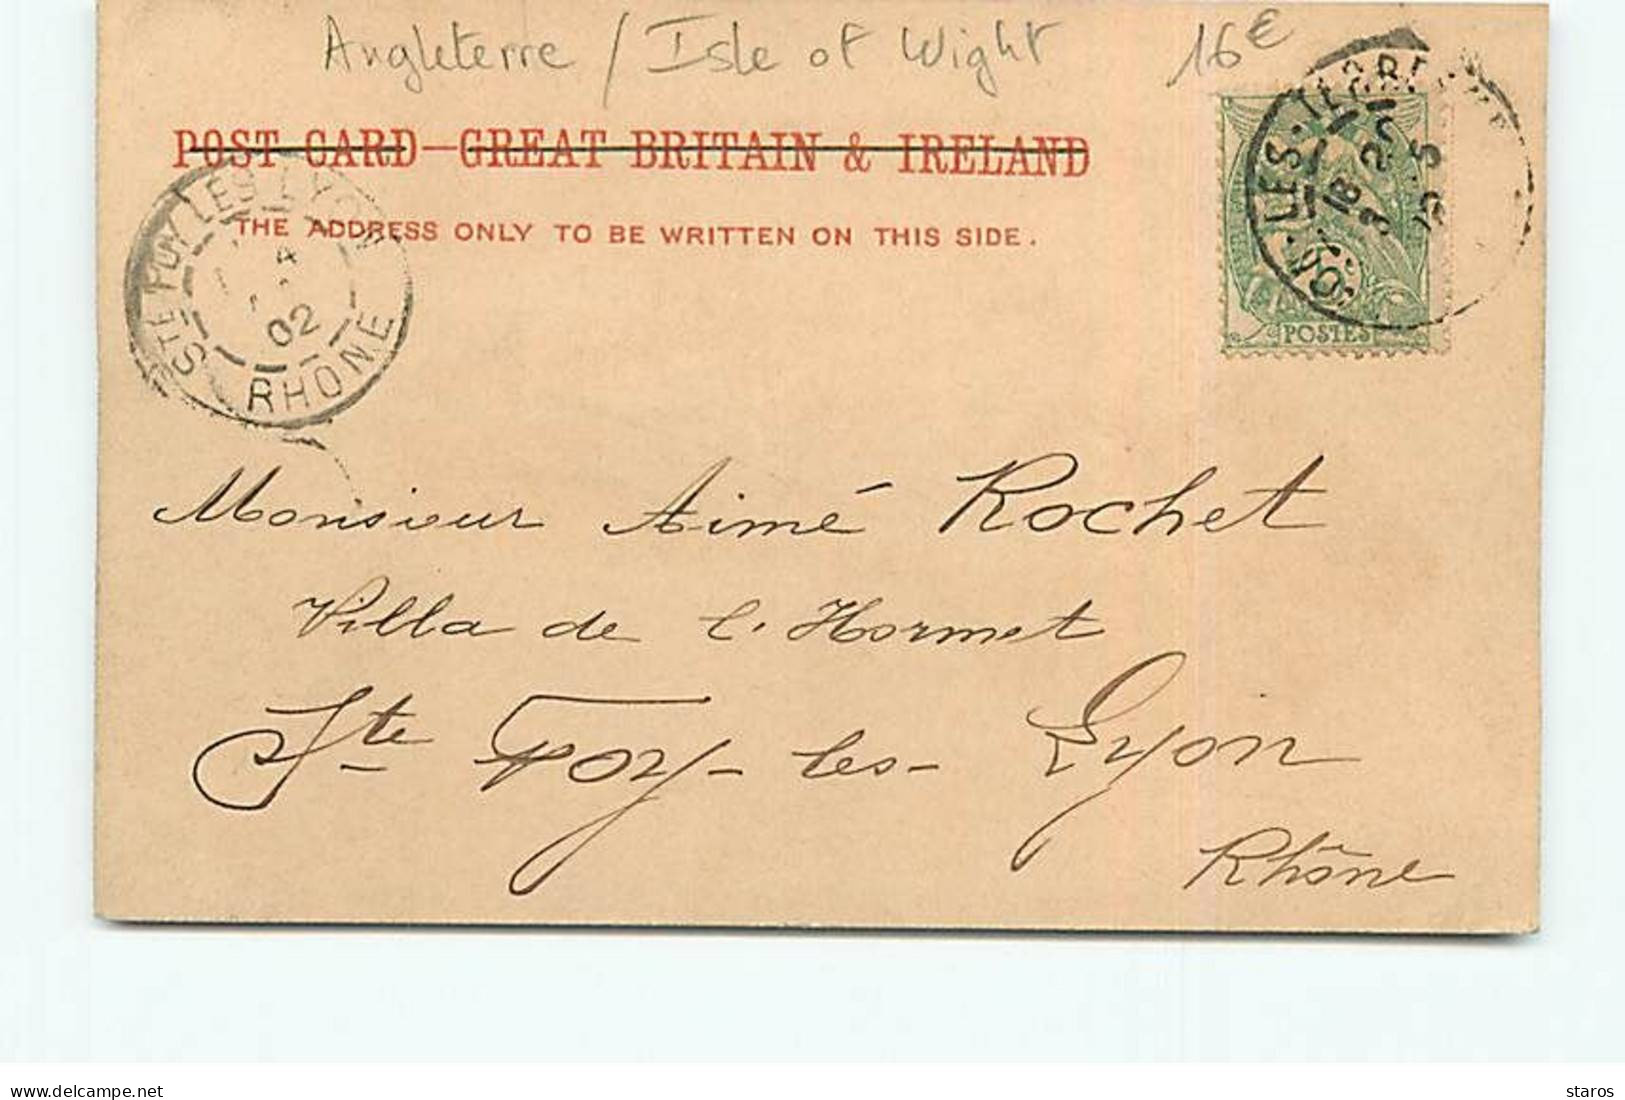 Angleterre / Isle of Wight 16€
POST CARD—GREAT BRITAIN & IRELAND
THE ADDRESS ONLY TO BE WRITTEN ON THIS SIDE.
02
RHONE
POSTES
Monsieur Aimé Rochet
Villa de l'Hormet
Ste Foy-les-Lyon
Rhône
delcampe.net
staros